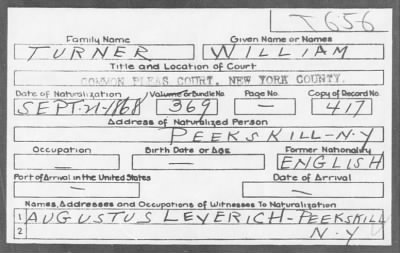 T 656
Family Name Given Name or Names
TURNER WILLIAM
Title and Location of Court
COMMON PLEAS COURT, NEW YORK COUNTY.
Date of Naturalization Volume or Bundle No. Page No. Copy of Record No.
SEPT-21-1868 369 — 417
Address of Naturalized Person
PEEKSKILL-N.Y
Occupation Birth Date or Age Former Nationality
— — ENGLISH
Port of Arrival in the United States Date of Arrival
— —
Names, Addresses and Occupations of Witnesses To Naturalization
1 AUGUSTUS LEVERICH-PEEKSKILL
2 N.Y